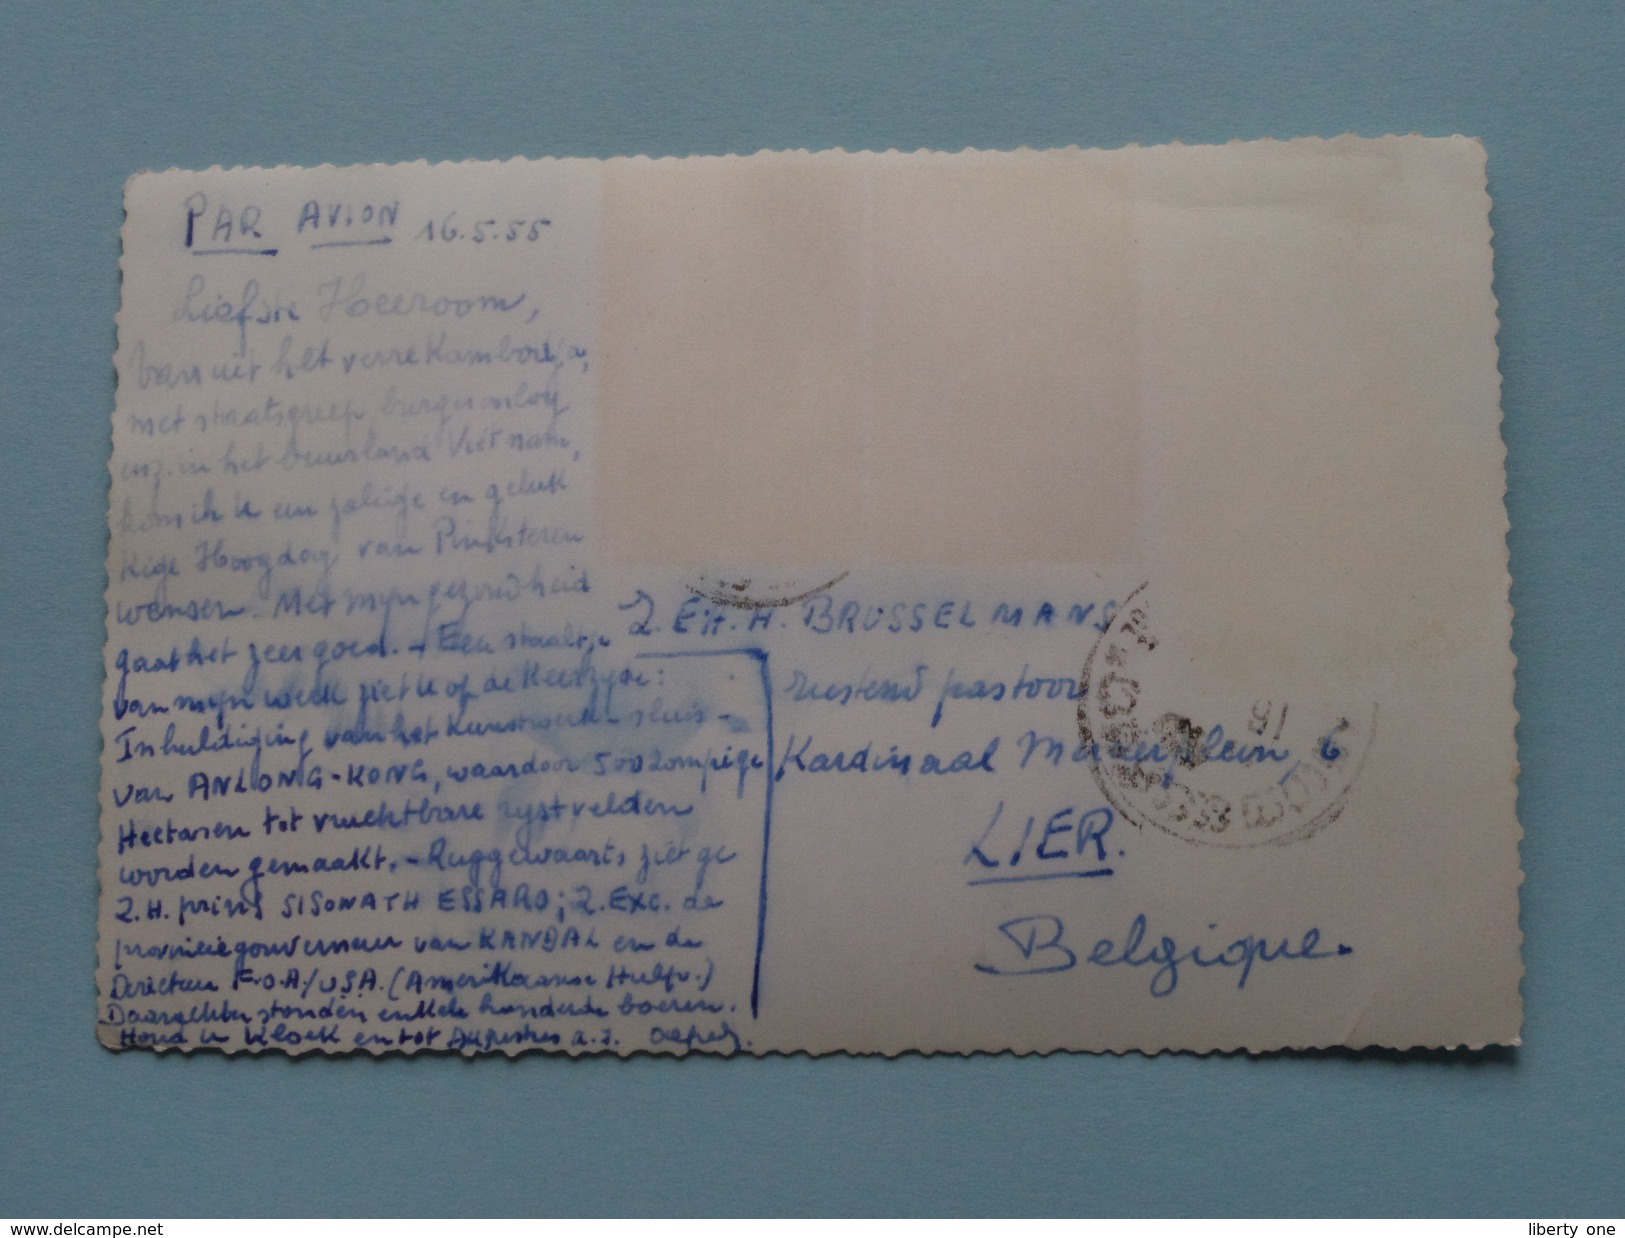 PAR AVION 16.5.55
Liefste Heeroom,
Vanuit het verre Kambodja,
met staatsgreep, burgeroorlog
enz. in het buurland Viet nam,
kom ik u een zalige en geluk
kige Hoogdag van Pinksteren
wensen. Met mijn gezondheid
gaat het zeer goed. - Een staaltje
van mijn werk ziet u op de keerzijde:
Inhuldiging van het kunstwerk - sluis -
van ANLONG-KONG, waardoor 500 zompige
Hectaren tot vruchtbare rijstvelden
worden gemaakt. - Ruggewaarts ziet ge
Z.H. prins SISOWATH ESSARO; Z. Exc. de
provinciegouverneur van KANDAL en de
Directeur F.O.A./U.S.A. (Amerikaanse Hulp.)
Daarachter stonden enkele honderde boeren.
Houd u kloek en tot a.s.
Z. E.H. H. BRUSSELMANS
rustend pastoor
Kardinaal Mercierplein, 6
LIER.
Belgique.
16
www.delcampe.net
liberty one